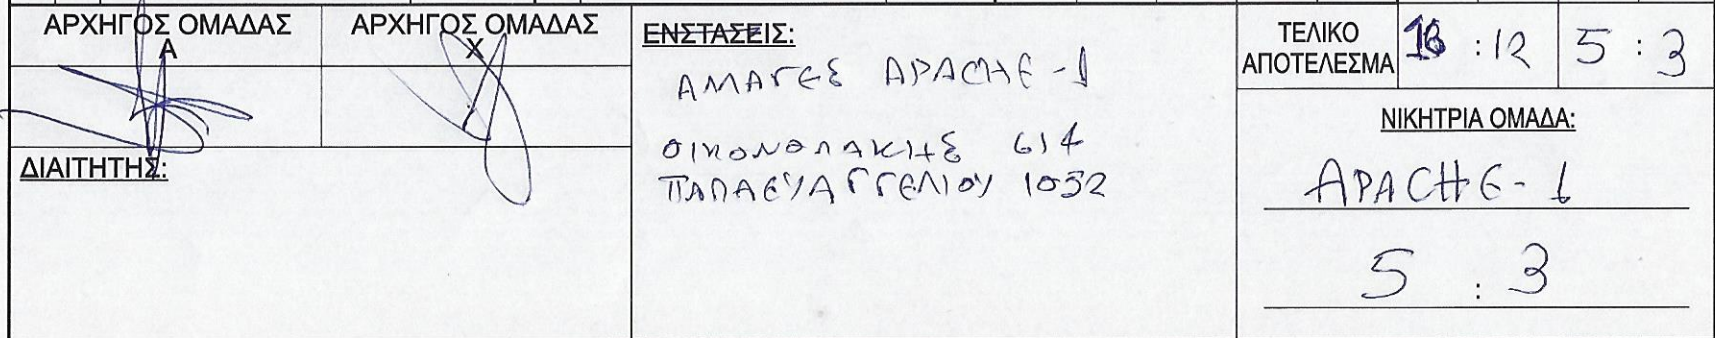 ΑΡΧΗΓΟΣ ΟΜΑΔΑΣ
Α
ΑΡΧΗΓΟΣ ΟΜΑΔΑΣ
Χ
ΔΙΑΙΤΗΤΗΣ:
ΕΝΣΤΑΣΕΙΣ:
ΑΛΛΑΓΕΣ APACHE-1
ΟΙΚΟΝΟΛΑΚΗΣ 614
ΠΑΠΑΕΥΑΓΓΕΛΙΟΥ 1052
ΤΕΛΙΚΟ
ΑΠΟΤΕΛΕΣΜΑ
: 12
5 : 3
ΝΙΚΗΤΡΙΑ ΟΜΑΔΑ:
APACHE-1
5 : 3